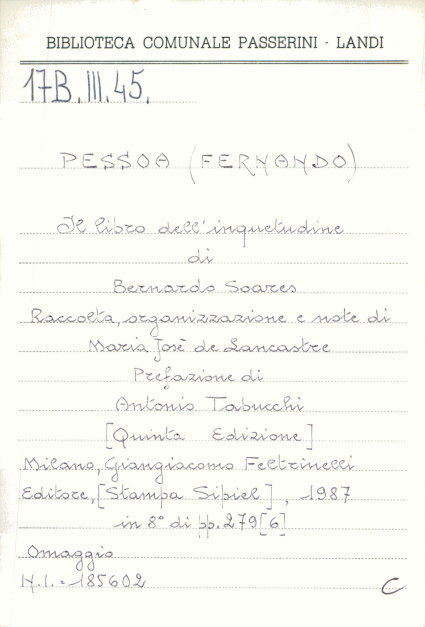 BIBLIOTECA COMUNALE PASSERINI - LANDI
17B.III.45.
PESSOA (FERNANDO)
Il libro dell'inquetudine
di
Bernardo Soares
Raccolta, organizzazione e note di
Maria Josè de Lancastre
Prefazione di
Antonio Tabucchi
[Quinta Edizione]
Milano, Giangiacomo Feltrinelli
Editore, [Stampa Sipiel], 1987
in 8° di pp. 279[6]
Omaggio
N.I. = 185602
C